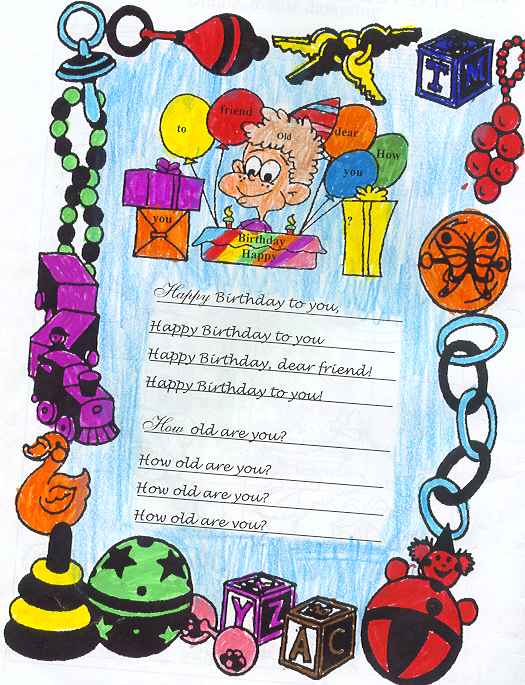 T M
friend
to
Old
dear
How
you
you
?
Birthday
Happy
Happy Birthday to you,
Happy Birthday to you
Happy Birthday, dear friend!
Happy Birthday to you!
How old are you?
How old are you?
How old are you?
How old are you?
Y Z
A C